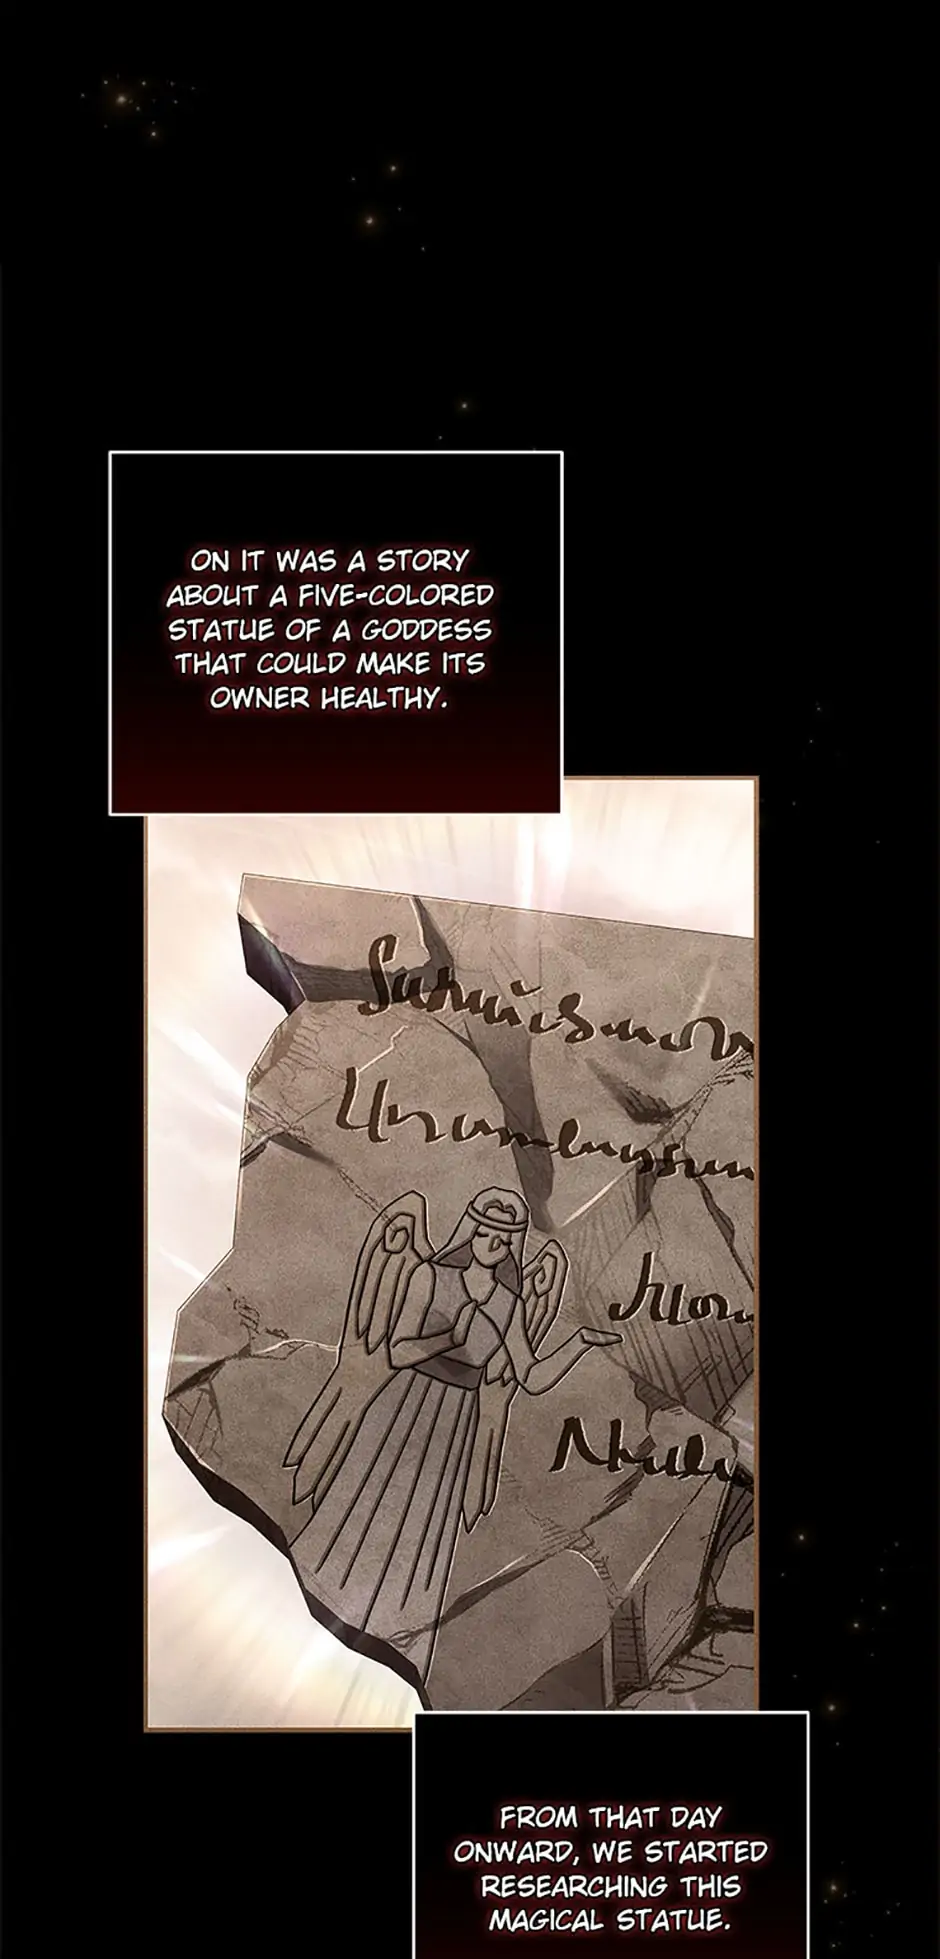 ON IT WAS A STORY
ABOUT A FIVE-COLORED
STATUE OF A GODDESS
THAT COULD MAKE ITS
OWNER HEALTHY.
FROM THAT DAY
ONWARD, WE STARTED
RESEARCHING THIS
MAGICAL STATUE.